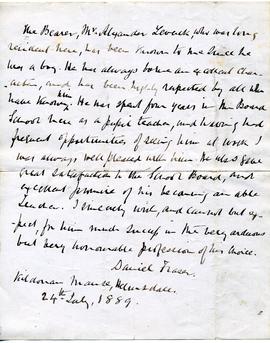 The Bearer, Mr. Alexander Leveck, who was long
resident here, has been known to me since he
was a boy. He has always borne an excellent char-
acter, and has been highly respected by all who
have known him. He has spent four years in the Board
School here as a pupil teacher, and having had
frequent opportunities of seeing him at work I
was always well pleased with him. He also gave
great satisfaction to the School Board, and
excellent promise of his becoming an able
teacher. I sincerely wish, and cannot but ex-
pect, for him much success in the very arduous
but very honourable profession of his choice.
Daniel Fraser.
Kildonan Manse, Helmsdale.
24th July, 1889.